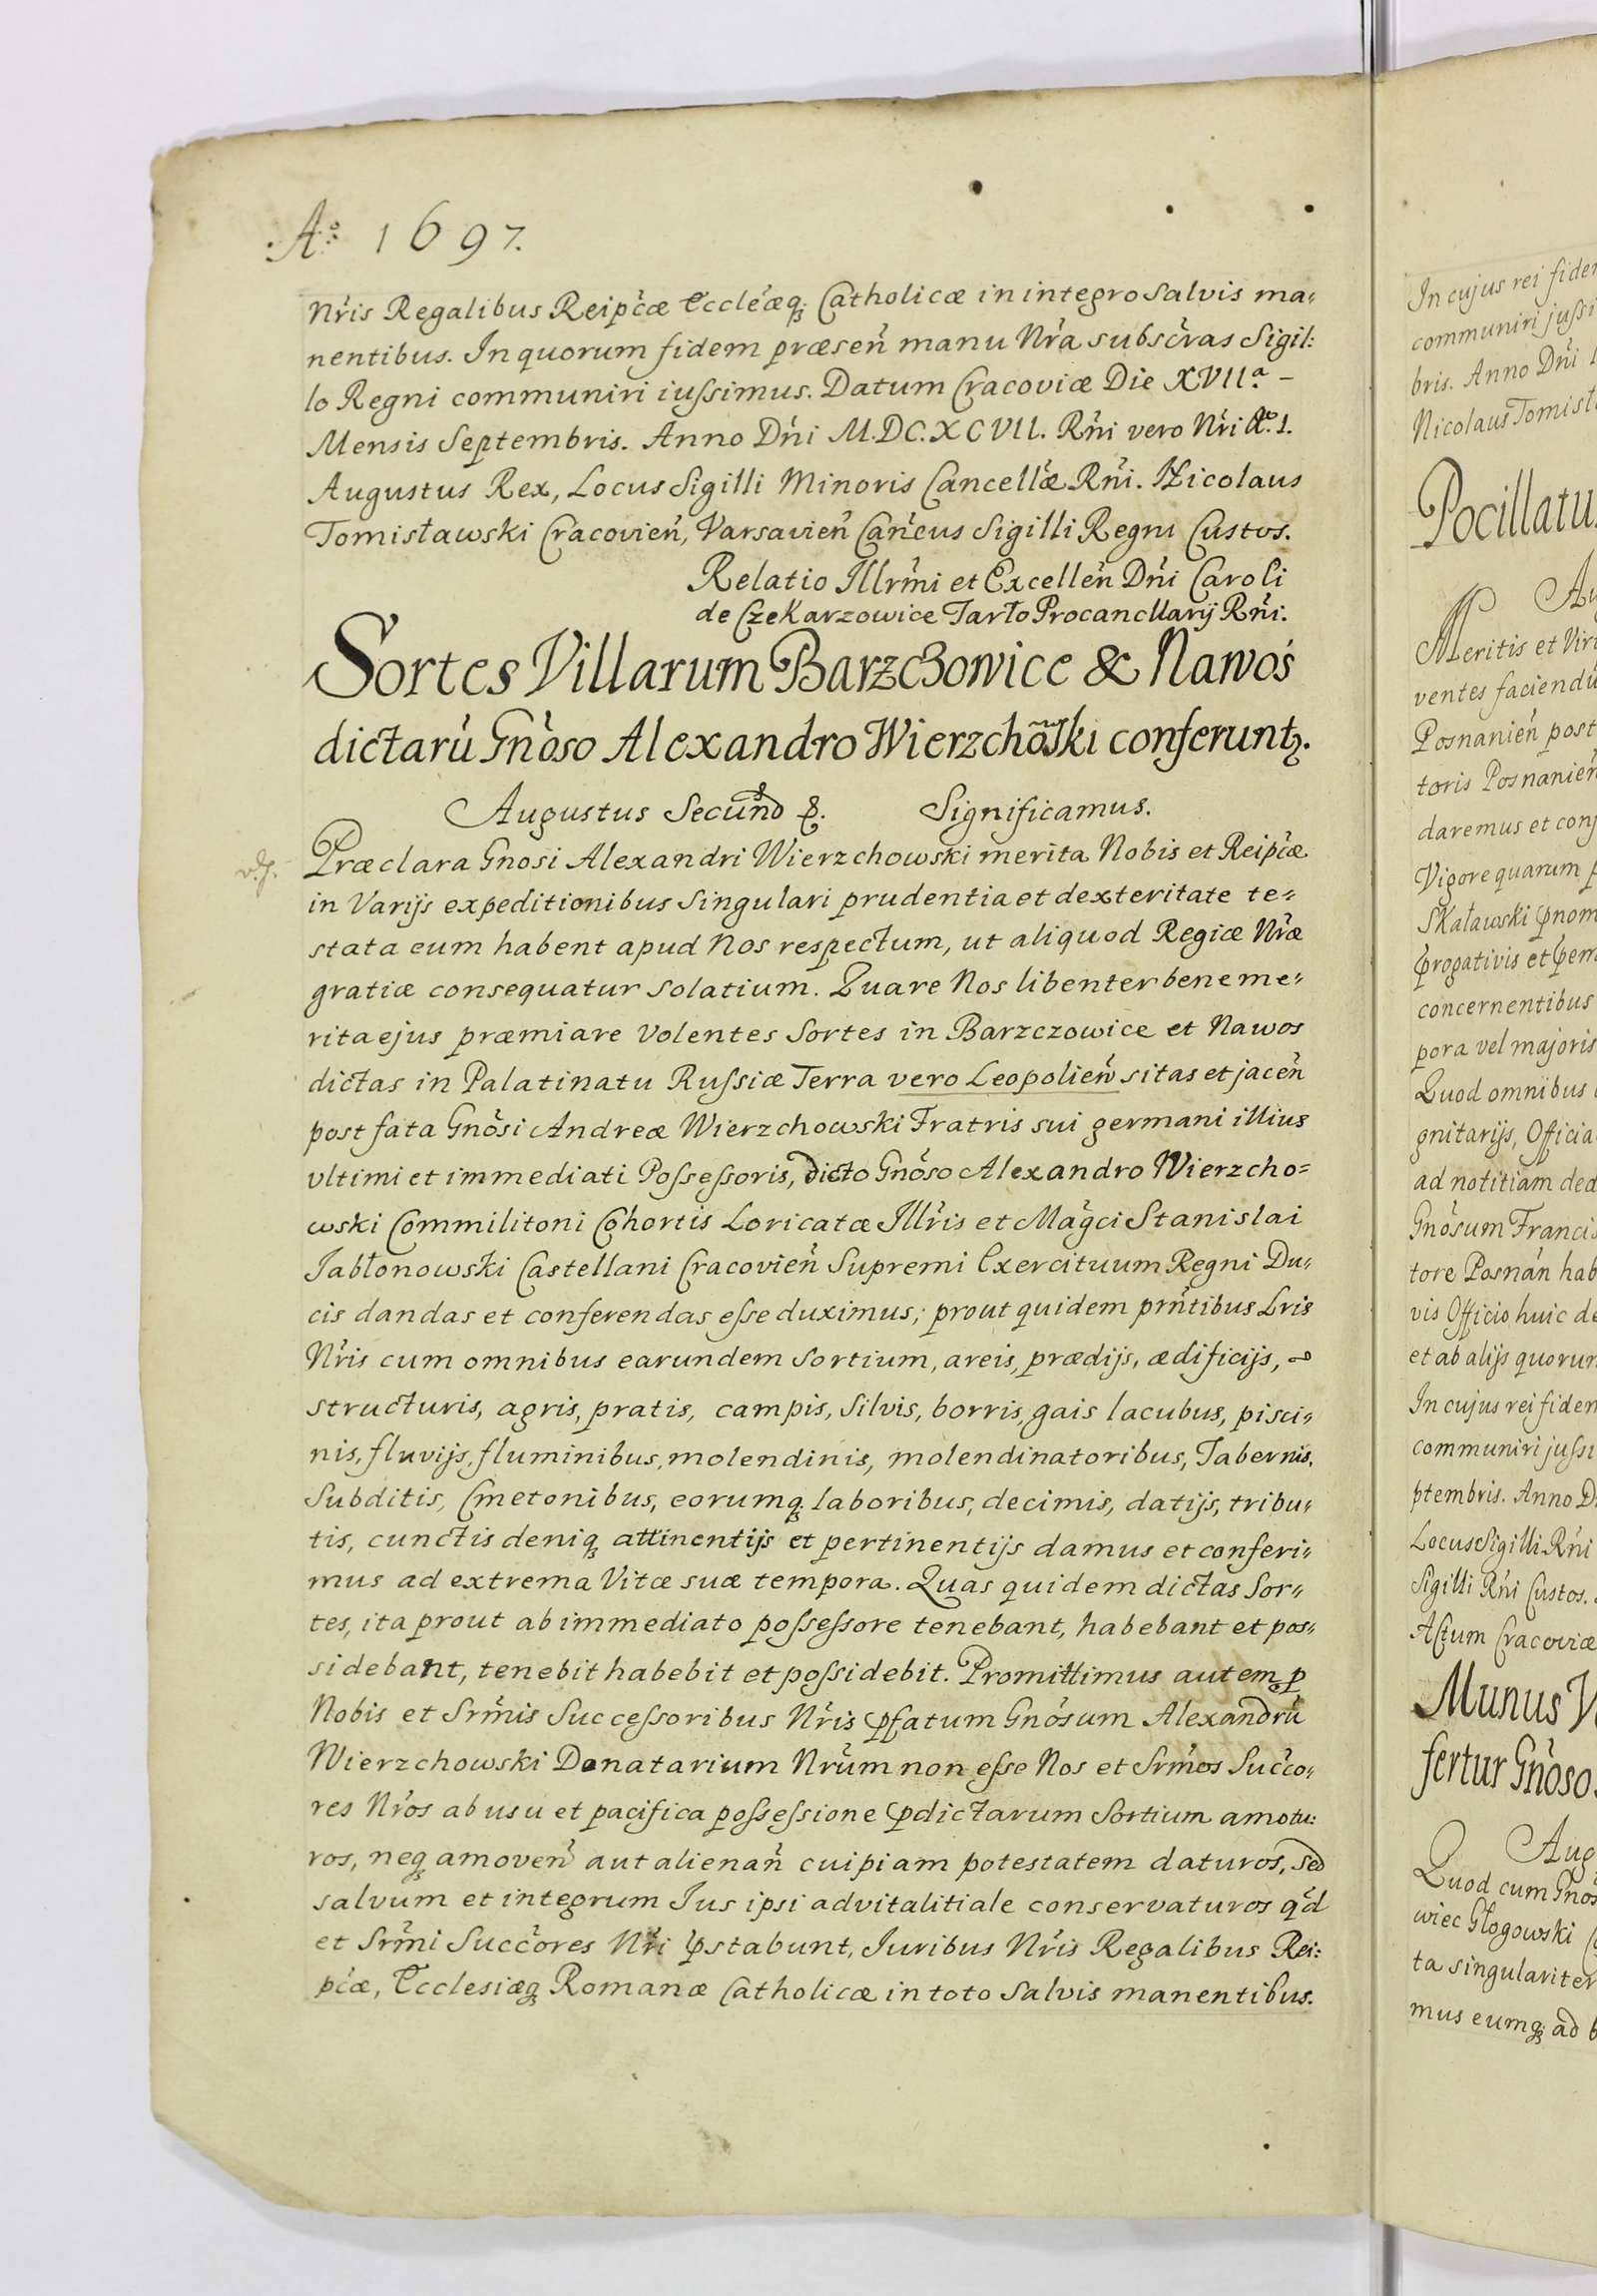 Aº 1697.
Nris Regalibus Reipcæ Eccleæq; Catholicæ in integro salvis ma„
nentibus. In quorum fidem præsen̄ manu Nra subscras Sigil:
lo Regni communiri iussimus. Datum Cracoviæ Die XVIIª –
Mensis Septembris. Anno Dni M.DC.XCVII. Rni vero Nri Aº. 1.
Augustus Rex, Locus Sigilli Minoris Cancellæ Rni. Nicolaus
Tomisławski Cracovien̄, Varsavien̄ Cancus Sigilli Regni Custos.
Relatio Illrmi et Excellen̄ Dni Caroli
de Czekarzowice Tarło Procancllarij Rni.
Sortes Villarum Barzchowice & Nawos
dictarū Gnoso Alexandro Wierzchoski conferuntꝫ.
Augustus Secund9 &. Significamus.
Præclara Gnosi Alexandri Wierzchowski merita Nobis et Reipcæ
in Varijs expeditionibus singulari prudentia et dexteritate te„
stata eum habent apud Nos respectum, ut aliquod Regiæ Nræ
gratiæ consequatur solatium. Quare Nos libenter bene me„
rita ejus præmiare volentes Sortes in Barzczowice et Nawos
dictas in Palatinatu Russiæ Terra vero Leopolien̄ sitas et jacen̄
post fata Gnosi Andreæ Wierzchowski Fratris sui germani illius
vltimi et immediati Possessoris, dicto Gnoso Alexandro Wierzcho=
wski Commilitoni Cohortis Loricatæ Illris et Magci Stanislai
Jabłonowski Castellani Cracovien̄ Supremi Exercituum Regni Du„
cis dandas et conferendas esse duximus; prout quidem prntibus Lris
Nris cum omnibus earundem sortium, areis, prædijs, ædificijs,
structuris, agris, pratis, campis, silvis, borris, gais lacubus, pisci„
nis, fluvijs, fluminibus, molendinis, molendinatoribus, Tabernis,
Subditis, Cmetonibus, eorumq; laboribus, decimis, datijs, tribu„
tis, cunctis deniq; attinentijs et pertinentijs damus et conferi„
mus ad extrema Vitæ suæ tempora. Quas quidem dictas Sor„
tes, ita prout ab immediato possessore tenebant, habebant et pos„
sidebant, tenebit habebit et possidebit. Promittimus autem p̱
Nobis et Srmis Successoribus Nris ꝓfatum Gnosum Alexandrū
Wierzchowski Donatarium Nrum non esse Nos et Srmos Succo„
res Nros ab usu et pacifica possessione ꝓdictarum Sortium amotu:
ros, neq; amoven̄ aut alienan̄ cuipiam potestatem daturos, sed
salvum et integrum Jus ipsi advitalitiale conservaturos qd
et Srmi Succores Nri ꝓstabunt, Juribus Nris Regalibus Rei:
pcæ, Ecclesiæq; Romanæ Catholicæ in toto salvis manentibus.
In cujus rei fidem
communiri jussi
bris. Anno Dni 1
Nicolaus Tomisła
Pocillatu
Au
Meritis et Vir
ventes faciendū
Posnanien̄ post
toris Posnanien̄
daremus et conf
Vigore quarum p
Skaławski ꝓnom
ꝓrogativis et
concernentibus
pora vel majoris
Quod omnibus
gnitarijs, Officia
ad notitiam ded
Gnosum Francis
tore Posnan̄ hab
vis Officio huic de
et ab alijs quorum
In cujus rei fidem
communiri jussi
ptembris. Anno D
Locus Sigilli Rni
Sigilli Rni Custos.
Actum Cracoviæ
Munus V
fertur Gnoso
Aug
Quod cum Gnos
wiec Głogowski
ta singulariter
mus eumq; ad b